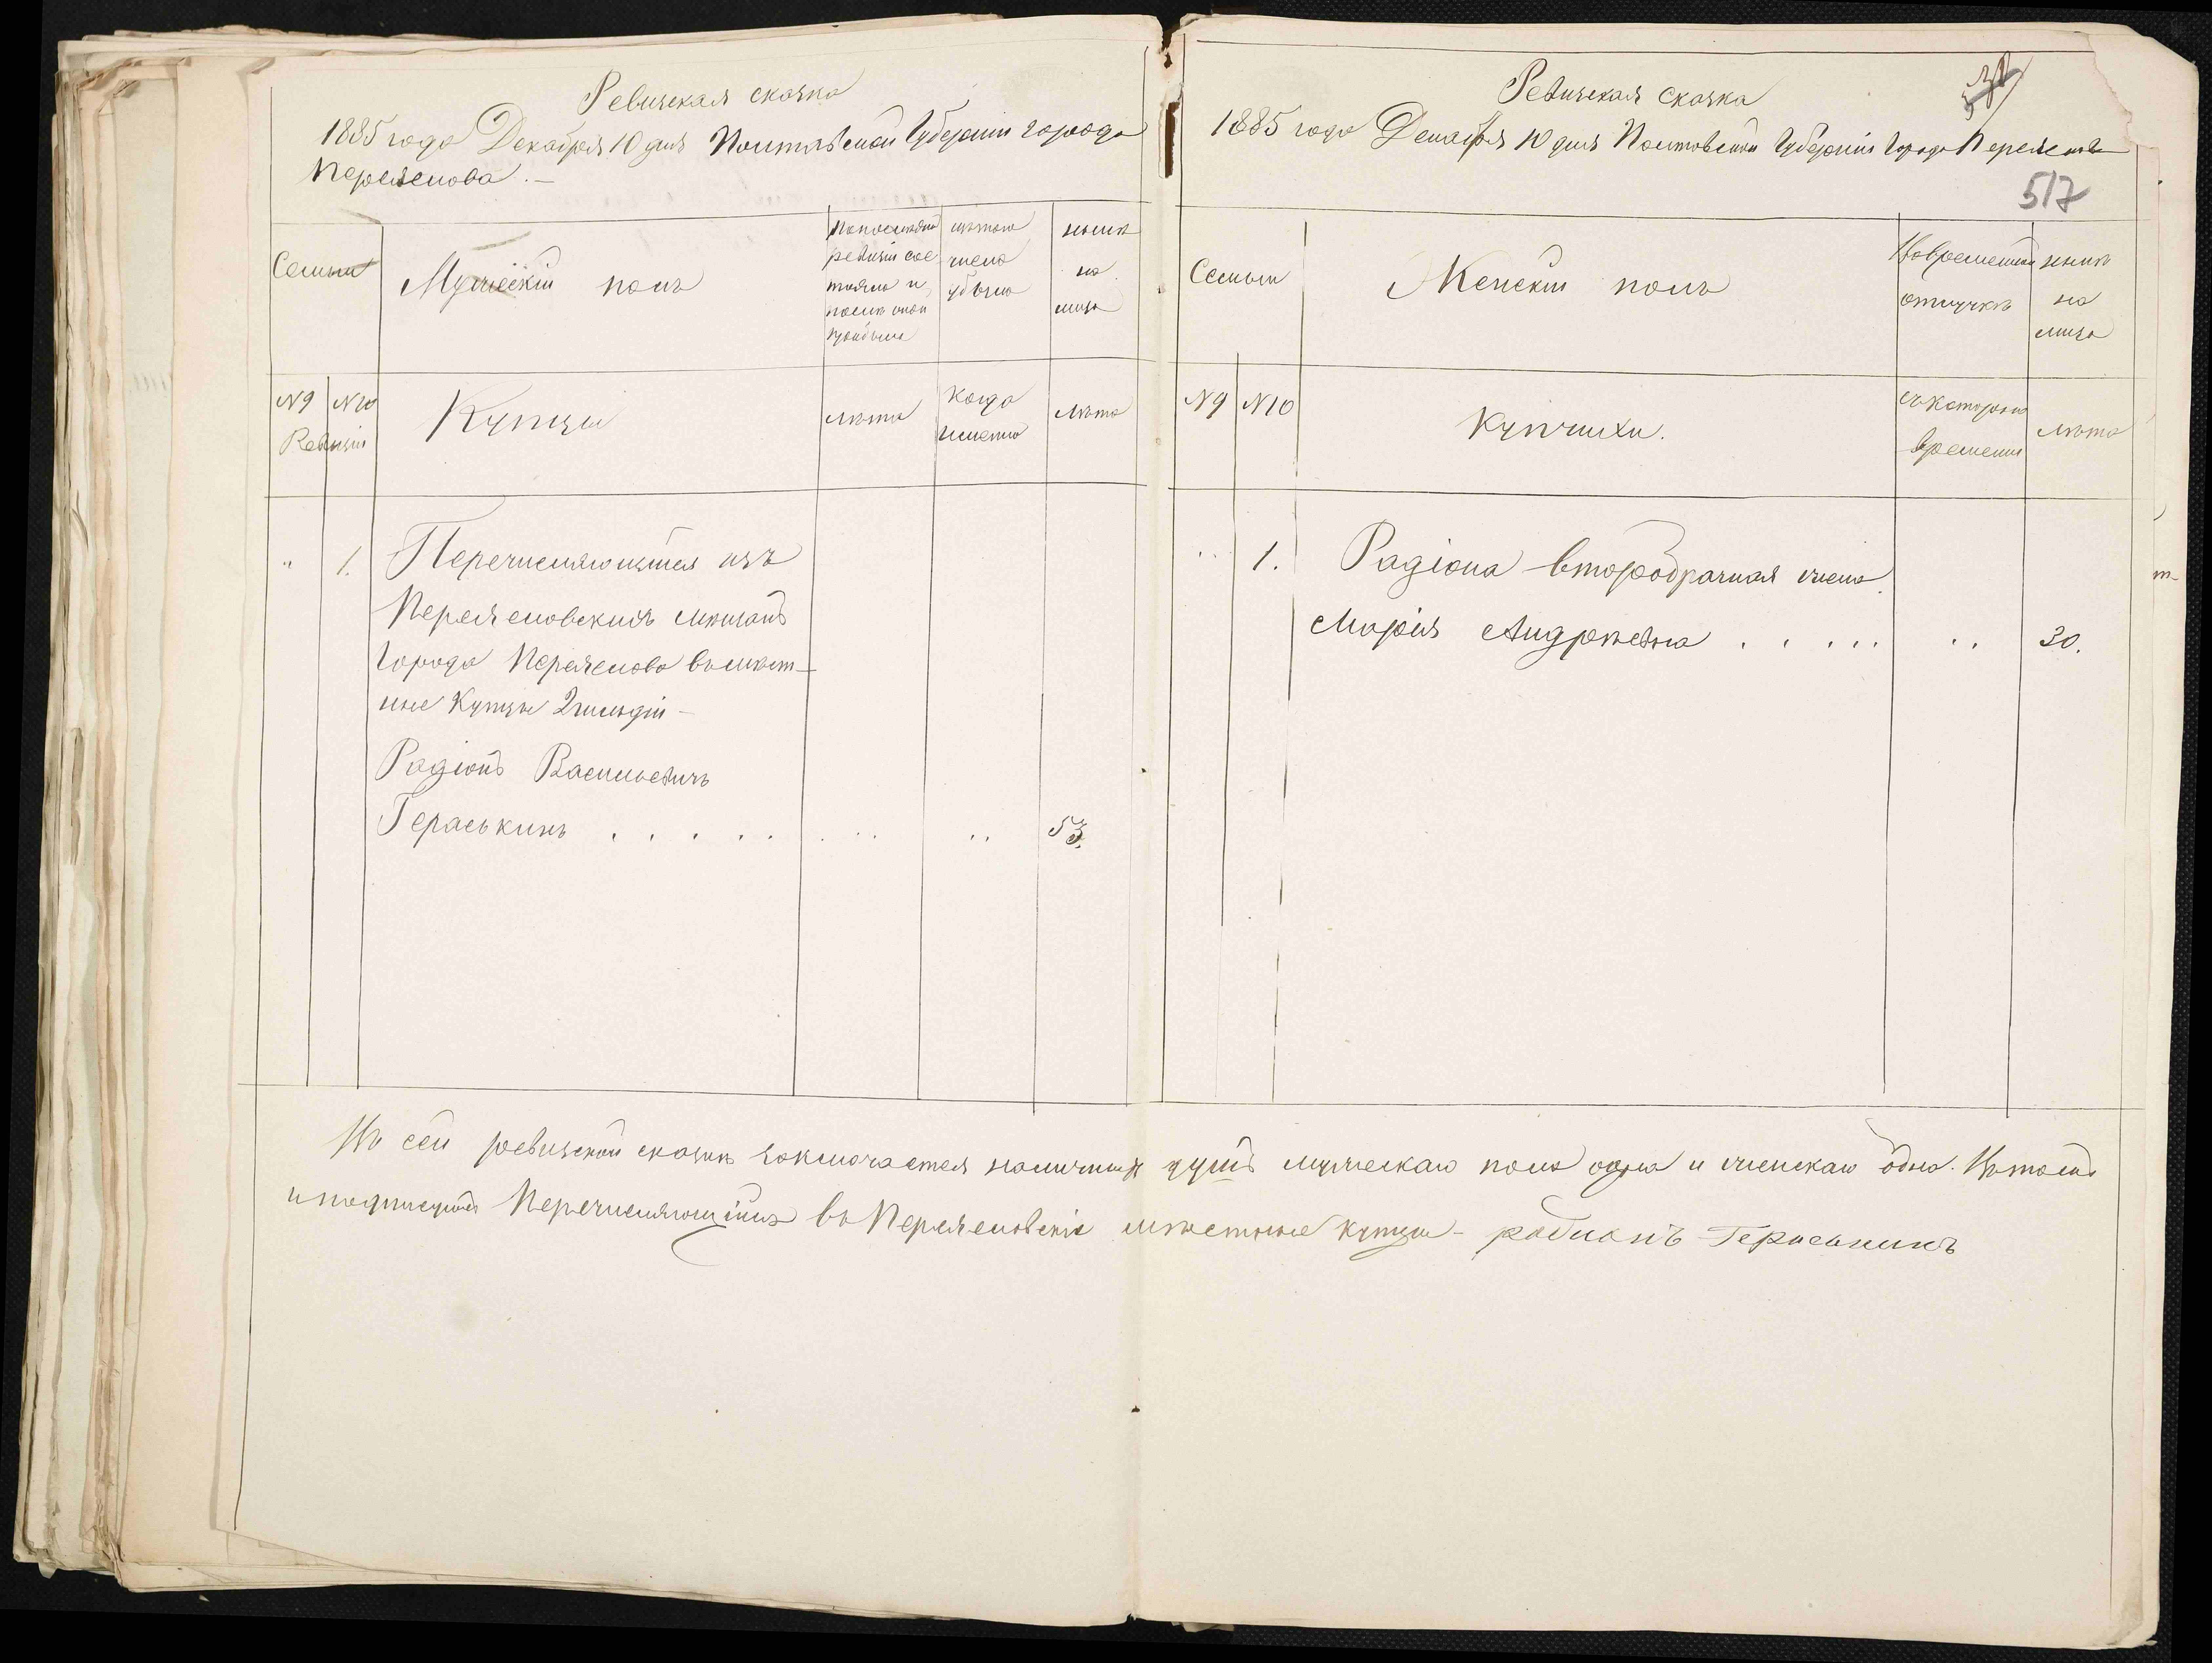 Ревизская сказка
1885 года Декабря 10 дня Полтавской Губерніи города
Переяслова.—
Семьи
Мужескій полъ
по последней
ревизіи сос
тояло и
после оной
прибыло
изъ того
числа
убыло
ныне
на
лицо
№ 9 № 10
Ревизіи
Купцы
лѣта
когда
именно
лѣта
" 1. Перечисляющiйся изъ
Переясловскихъ мѣщанъ
города Переяслова въ мѣст-
ные Купцы 2 гильдіи —
Радіонъ Васильевичъ
Гераськинъ . . . . . . . . . . 53.
Ревизская сказка
1885 года Декабря 10 дня Полтавской Губерніи Города Переяслова
517
Семьи
Женскій полъ
Во временной
отлучкѣ
ныне
на
лицо
№ 9 № 10
Купчихи.
съ котораго
времени
лѣта
" 1. Радіона второбрачная жена
Марія Андрѣевна . . . . . . . 30.
Въ сей ревизской сказкѣ заключается наличныхъ душъ мужескаго пола одна и женскаго одна. Въ томъ
и подписуюсь Перечисляющійся въ Переясловскіе мѣстные купцы - радионъ Гераськинъ